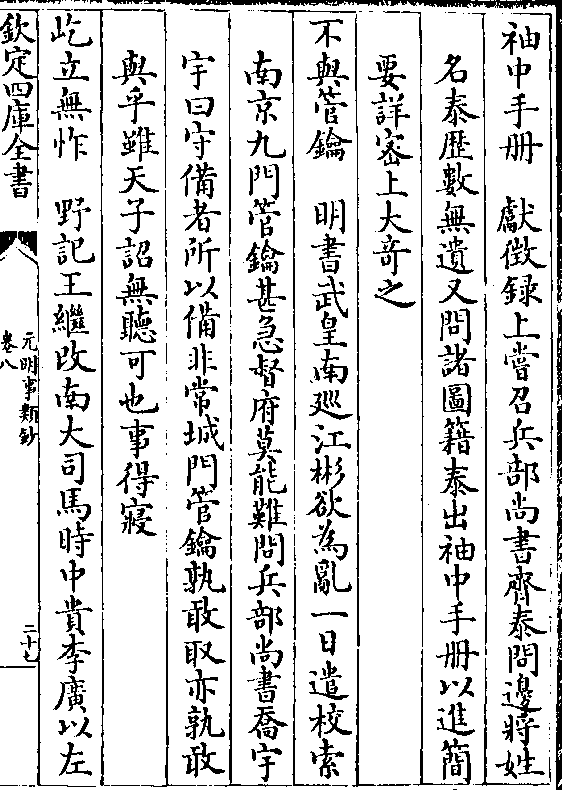 袖中手册　獻徴録上嘗召兵部尚書齊泰問邊將姓
名泰歴數無遺又問諸圖籍泰出袖中手册以進簡
要詳宻上大奇之
不與管鑰　明書武皇南廵江彬欲為亂一日遣校索
南京九門管鑰甚急督府莫能難問兵部尚書喬宇
宇曰守備者所以備非常城門管鑰孰敢取亦孰敢
與乎雖天子詔無聽可也事得寢
屹立無怍　野記王繼改南大司馬時中貴李廣以左
欽定四庫全書
元明事類鈔
卷八
二十七